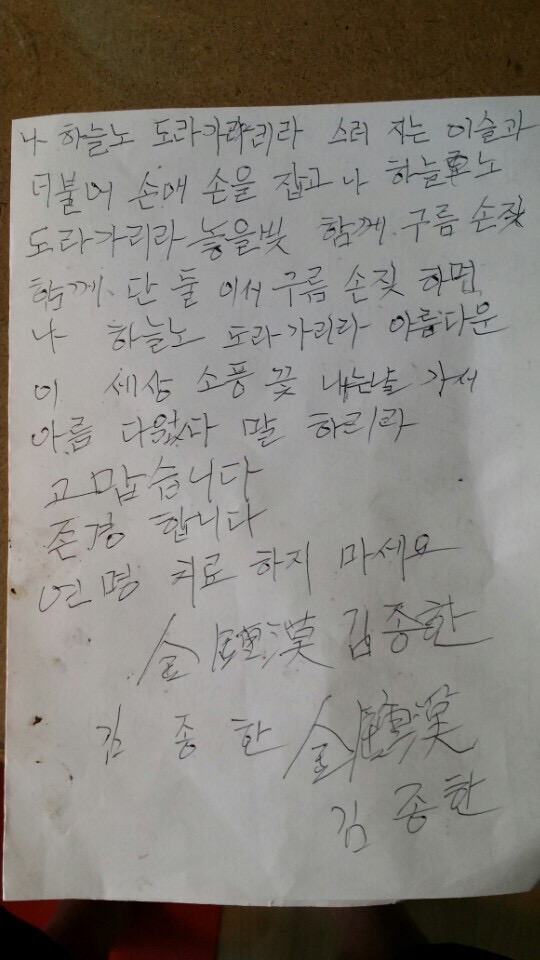 나 하늘노 도라가리라 스러 지는 이슬과
더불어 손에 손을 잡고 나 하늘노
도라가리라 놓을빛 함께 구름 손짖
함께 단 둘 이서 구름 손짖 하면
나 하늘노 도라가리라 아름다운
이 세상 소풍 끛 내는날 가서
아름 다웠다 말 하리라
고맙습니다
존경 합니다
연명 치료 하지 마세요
金 漢 김종한
김 종 한 金 漢
김 종한